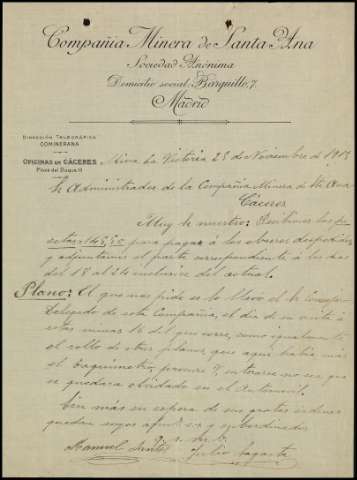 Compañía Minera de Santa Ana
Sociedad Anónima
Domicilio social: Barquillo, 7.
Madrid
DIRECCIÓN TELEGRÁFICA
COMINERANA
OFICINAS EN CÁCERES
Plaza del Duque 11
Mina La Victoria 25 de Noviembre de
Sr Administrador de la Compañia Minera de Sta Ana
Cáceres
Muy Sr nuestro: Recibimos las pe
setas para pagar á los obreros despedidos
y adjuntamos el parte correspondiente á los dias
del 18 al 24 inclusive del actual.
Plano: El que nos pide se lo llevó el Sr Consejero
Delegado de esta Compañia, el dia de su visita á
estas minas 16 del que corre, como igualmente
el rollo de otros planos que aqui habia mas
el Taquimetro, no sea que
se quedara olvidado en el Automovil.
Sin más en espera de sus gratas ordenes
quedan suyos afmos. s.s. y subordinados
q. s. m. b.
Manuel
Julio